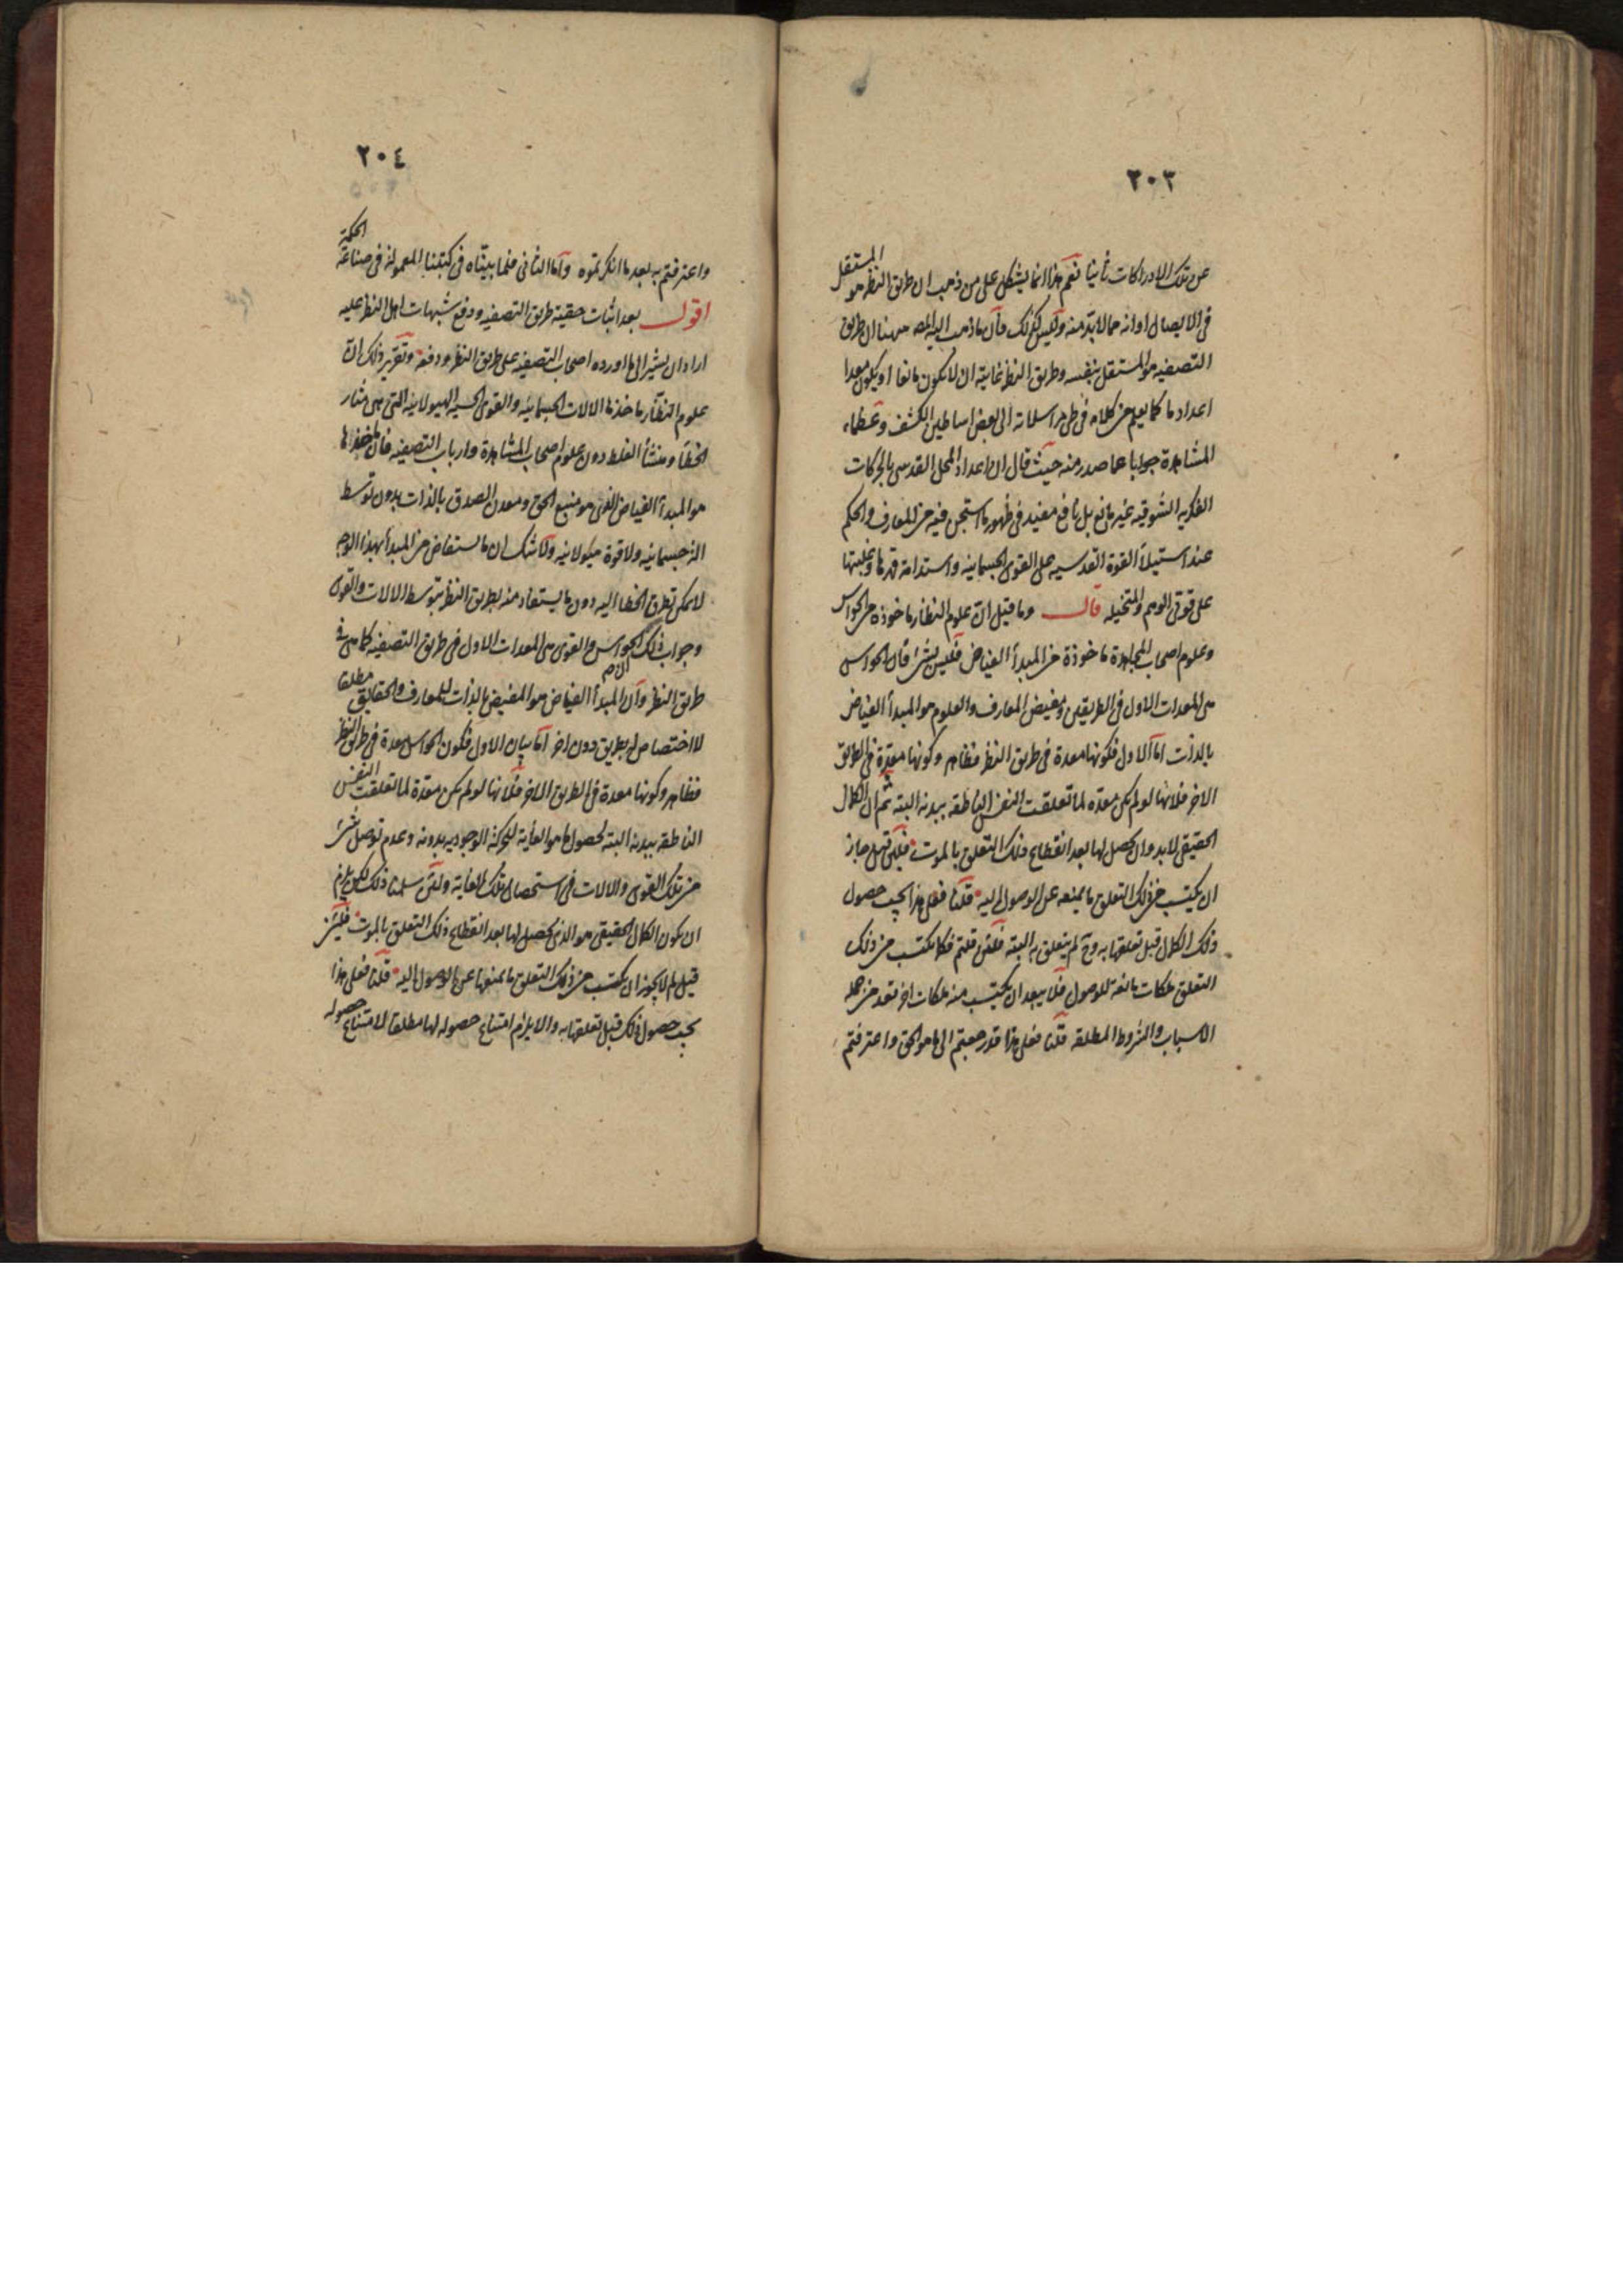 ٢٠٣
المستقل
عن تلك الادراكات ثانيا نعم هذا انما يشكل على من ذهب ان طريق النظر هو
فى الايصال او انه مما لابد منه وليس كذلك فان ما ذهب اليه المص ههنا ان طريق
التصفيه هو المستقل بنفسه وطريق النظر غايته ان لا يكون مانعا او يكون معدا
اعداد ما كما يعلم من كلامه فى طى مراسلاته الى بعض اساطين الكشف وعظماء
المشاهدة جوابا عما صدر منه حيث قال ان اعداد المحل القدسى بالحركات
الفكريه الشوقيه غير مانع بل نافع مفيد فى ظهور ما استجن فيه من المعارف والحكم
عند استيلآ القوة القدسيه على القوى الجسمانيه واستدامة قهرها وغلبتها
على قوتى الوهم والمتخيله قال وما قيل ان علوم النظار ماخوذه من الحواس
وعلوم اصحاب المجاهدة ماخوذة من المبدأ الفياض فليس بشئ فان الحواس
هى المعدات الاول فى الطريقين ومفيض المعارف والعلوم هو المبدأ الفياض
بالذات اما الاول فلكونها معدة فى طريق النظر فظاهر وكونها معدة فى الطريق
الاخر فلانها لو لم يكن معده لما تعلقت النفس الناطقه ببدنه البته ثم ان الكمال
الحقيقى لابد وان يحصل لها بعد انقطاع ذلك التعلق بالموت فلئن قيل جاز
ان يكتسب من ذلك التعلق ما يمنعه عن الوصول اليه قلنا فعلى هذا يجب حصول
ذلك الكمال قبل تعلقها به وح لم يتعلق به البته فلئن قلتم فكما يكتسب من ذلك
التعلق ملكات مانعة للوصول فلا يبعد ان يكتسب منه ملكات اخر تعد من جمله
الاسباب والشروط المطلقه قلنا فعلى هذا قد رجعتم الى ما هو الحق واعترفتم
٢٠٤
الحكمة
واعترفتم به بعد ما انكرتموه واما الثانى فلما بيناه فى كتبنا المعمولة فى صناعة
اقول بعد اثبات حقية طريق التصفيه ودفع شبهات اهل النظر عليه
اراد ان يشير الى ما اورده اصحاب التصفيه على طريق النظر ودفعه وتقرير ذلك ان
علوم النظار ماخذها الالات الجسمانيه والقوى الحسيه الهيولانيه التى هى مثار
الخطأ ومنشأ الغلط دون علوم اصحاب المشاهدة وارباب التصفيه فان ماخذها
هو المبدأ الفياض الذى هو منبع الحق ومعدن الصدق بالذات بدون توسط
الة جسمانيه ولا قوة هيولانيه ولا شك ان ما يستفاض من المبدأ بهذا الوجه
لا يمكن تطرق الخطا اليه دون ما يستفاد منه بطريق النظر بتوسط الالات والقوى
وجواب ذلك ان الحواس والقوى هى المعدات الاول فى طريق التصفيه كما هى فى
طريق النظر وان المبدأ الفياض هو المفيض بالذات للمعارف والحقايق مطلقا
لا اختصاص له بطريق دون اخر اما بيان الاول فلكون الحواس معدة فى طريق النظر
فظاهر وكونها معدة فى الطريق الاخر فلانها لو لم يكن معدة لما تعلقت النفس
الناطقه ببدنه البته لحصول ما هو الغاية للحركة الوجوديه بدونه وعدم توصل شئ
من تلك القوى والالات فى استحصال تلك الغاية ولئن سلمنا ذلك لكن يلزم
ان يكون الكمال الحقيقى هو الذى يحصل لها بعد انقطاع ذلك التعلق بالموت فلئن
قيل لم لا يجوز ان يكتسب من ذلك التعلق ما يمنعها عن الوصول اليه قلنا فعلى هذا
يجب حصول ذلك قبل تعلقها به والا يلزم امتناع حصوله لها مطلقا لامتناع حصوله